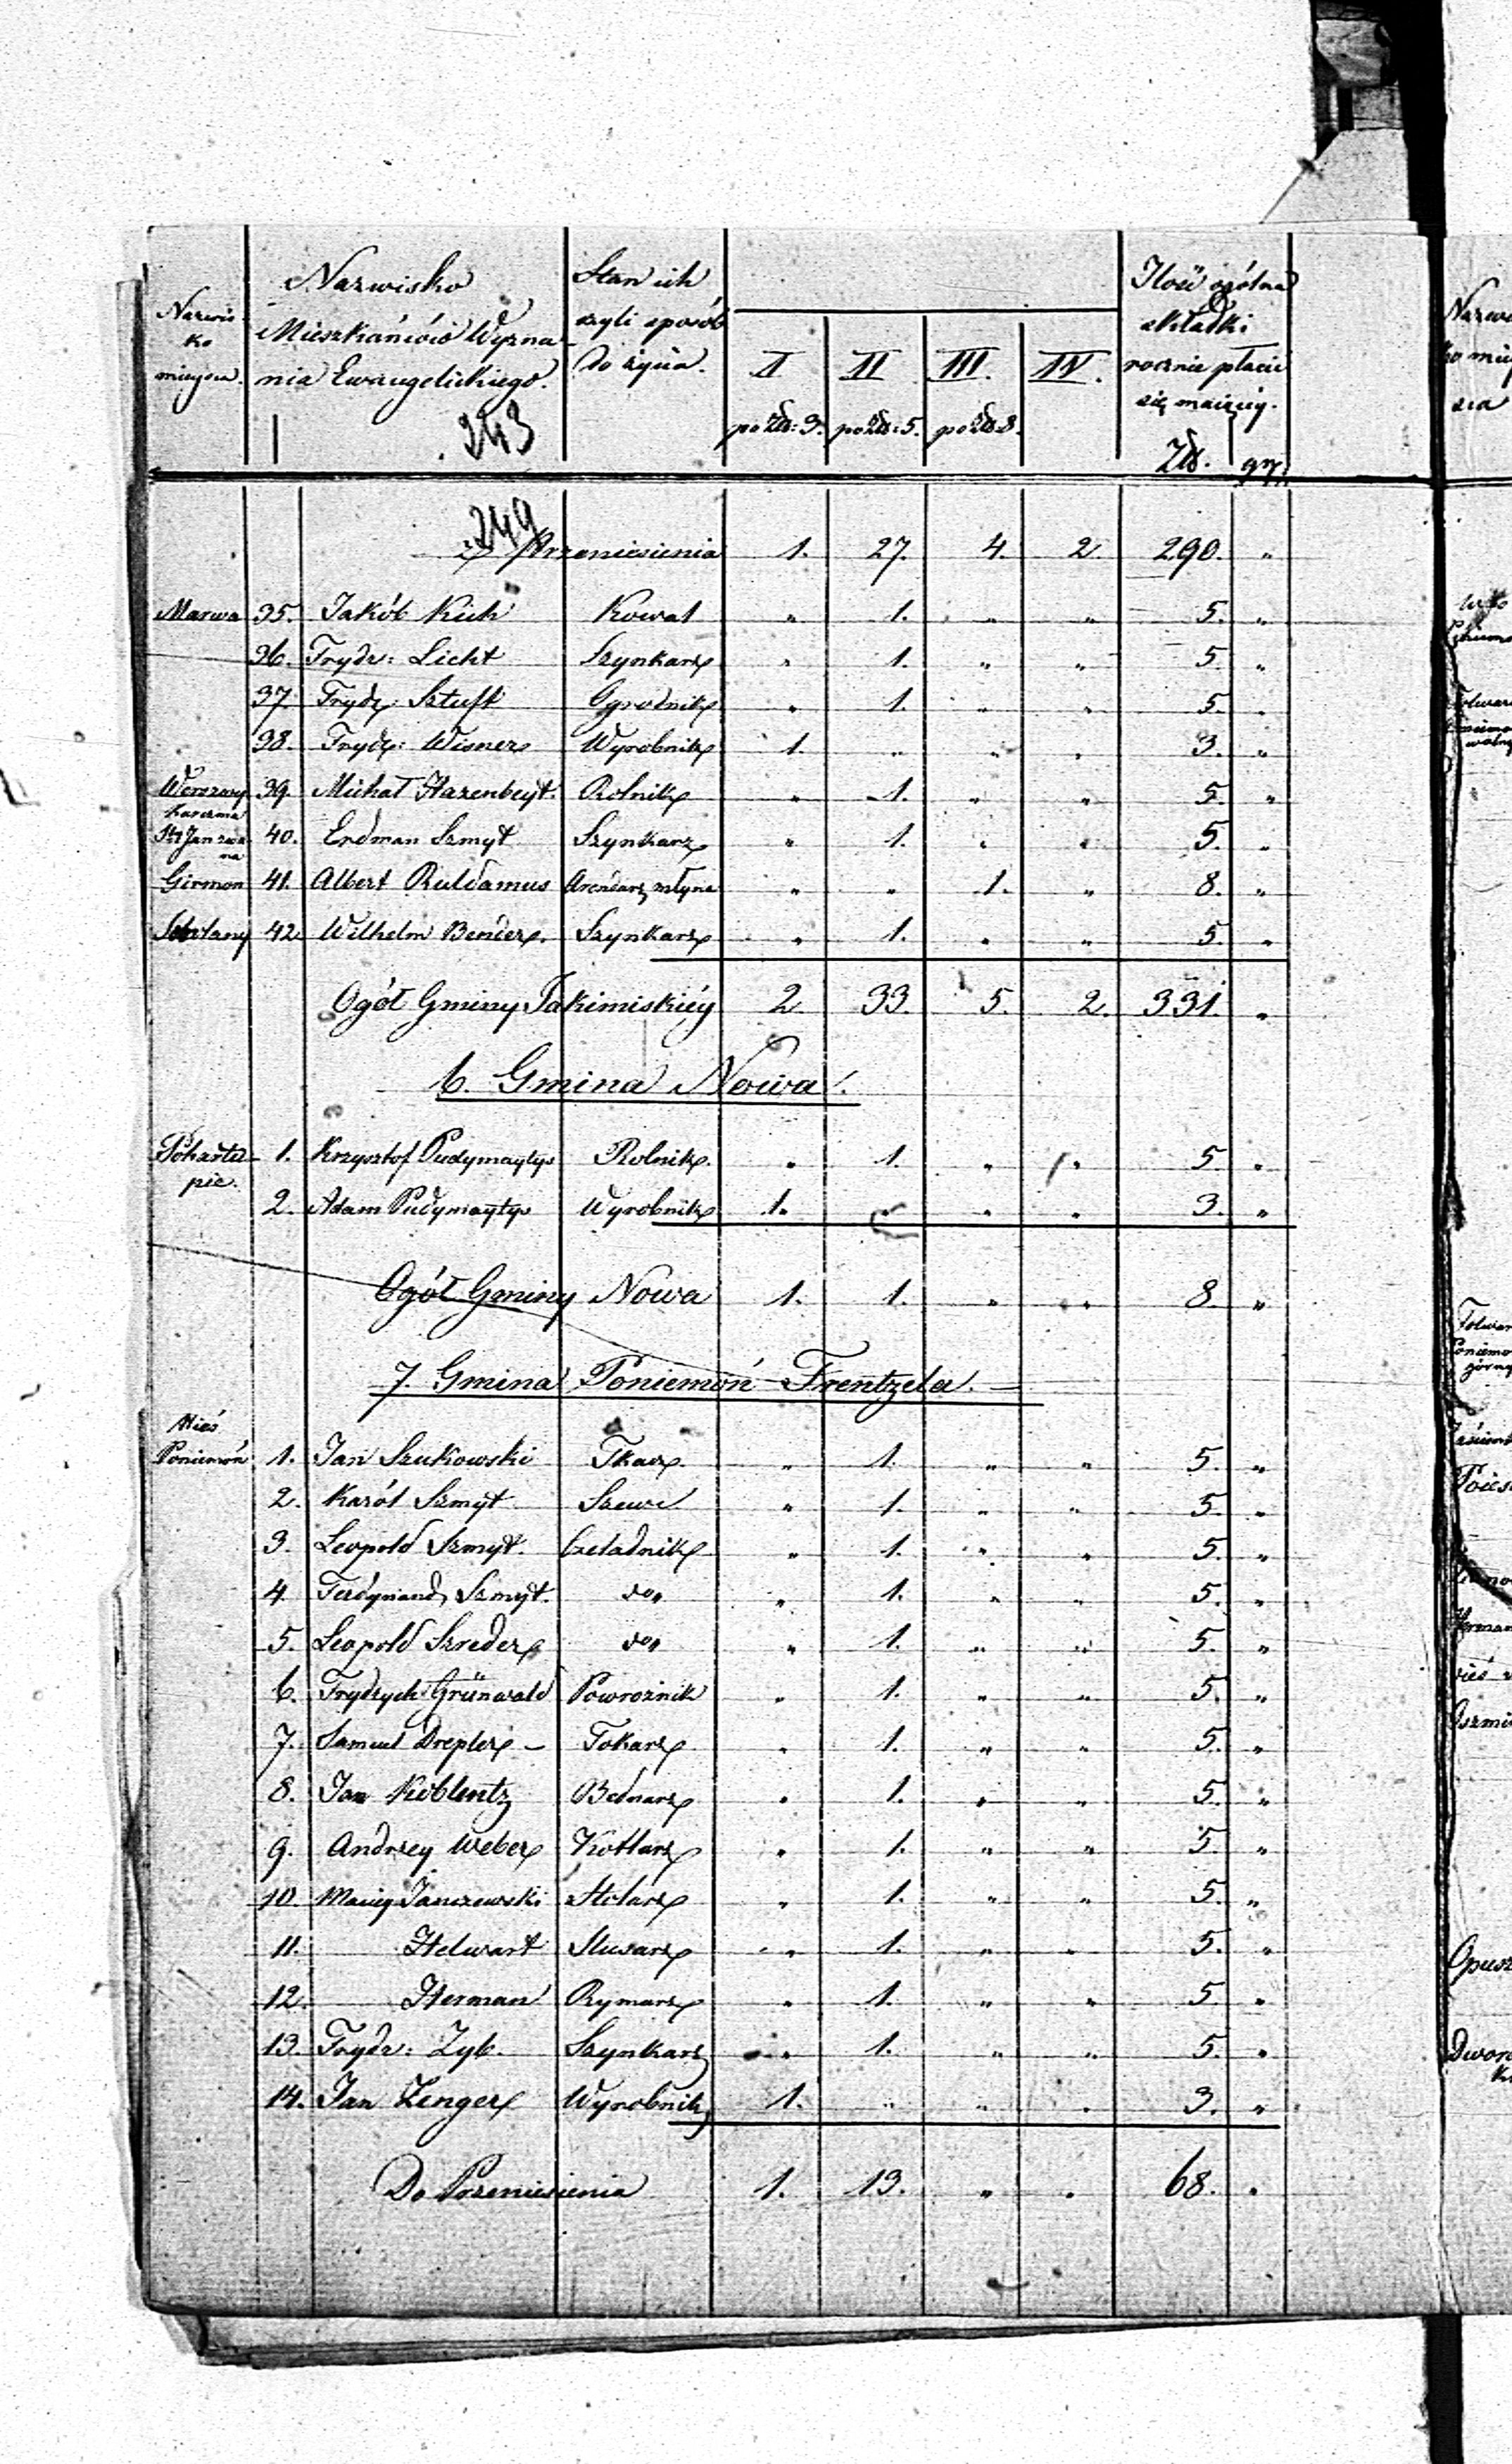 Nazwisko miejsca. Nazwisko Mieszkańców Wyzna- nia Ewangelickiego. Stan ich czyli sposób do życia. I po Złt: 3. II po Złt: 5. III. po Złt: 8. IV. Ilość ogólna składki rocznie płacić się mającej. Złt. gr.
243
249
z Przeniesienia 1. 27. 4. 2. 290. "
Marwa 35. Jakób Kich Kowal " 1. " " 5. "
36. Frydr: Licht Szynkarz " 1. " " 5. "
37. Frydr: Sztuft Ogrodnik " 1. " " 5. "
38. Frydr: Wisner Wyrobnik 1. " " " 3. "
39. Michał Hazenbeyt. Rolnik " 1. " " 5. "
karczma 40. Erdman Szmyt Szynkarz " 1. " " 5. "
Girmon 41. Albert Ruldamus Arendarz młyna " " 1. " 8. "
42. Wilhelm Bender. Szynkarz " 1. " " 5. "
Ogół Gminy Jakimiskiéy 2. 33. 5. 2. 331. "
6. Gmina Nowa.
1. Krzysztof Pudymaytys Rolnik. " 1. " " 5. "
2. Adam Pudymaytys Wyrobnik 1. " " " 3. "
Ogół Gminy Nowa 1. 1. " " 8. "
7. Gmina Poniemoń Frentzela.
Wieś
Poniemoń 1. Jan Szukowski Tkacz " 1. " " 5. "
2. Karól Szmyt Szewc " 1. " " 5. "
3. Leopold Szmyt. Czeladnik " 1. " " 5. "
4. Ferdynand Szmyt. do " 1. " " 5. "
5. Leopold Szreder do " 1. " " 5. "
6. Frydrych Grünwald Powroźnik " 1. " " 5. "
7. Samuel Drepler – Tokarz " 1. " " 5. "
8. Jan Koblentz Bednarz " 1. " " 5. "
9. Andrzey Weber Kotlarz " 1. " " 5. "
10. Maciey Janczewski Stolarz " 1. " " 5. "
11. Helwart Slusarz " 1. " " 5. "
12. Herman Rymarz " 1. " " 5. "
13. Frydr: Zyb. Szynkarz " 1. " " 5. "
14. Jan Zenger Wyrobnik 1. " " " 3. "
Do Przeniesienia 1. 13. " " 68. "